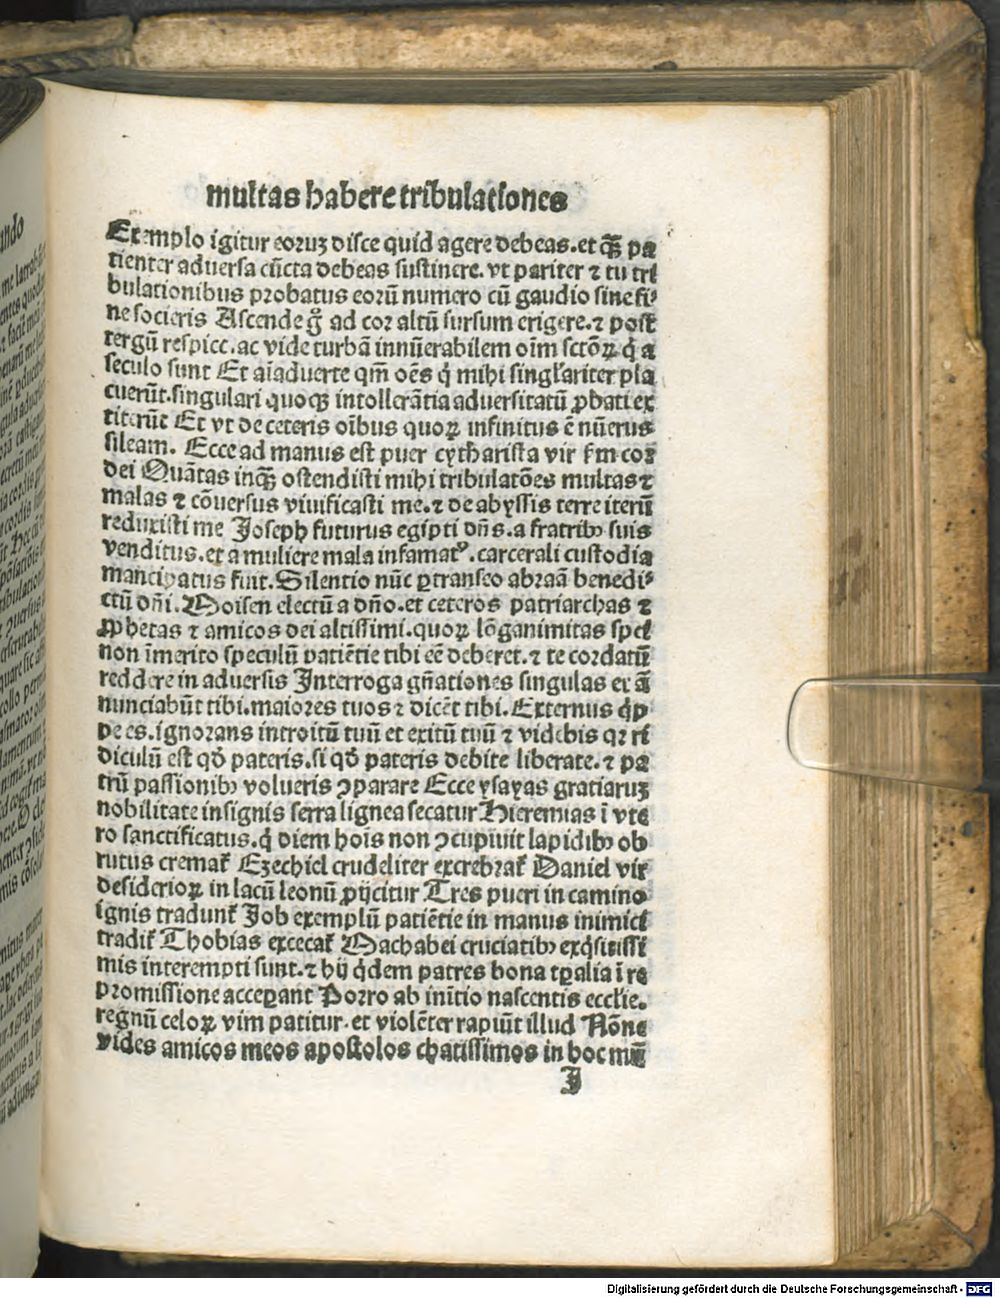 multas habere tribulationes
Exemplo igitur eoruꝫ disce quid agere debeas.et qͣꝫ pa
tienter adversa cūcta debeas sustinere. vt pariter ⁊ tu tri
bulationibus probatus eorū numero cū gaudio sine fi⸗
ne socieris Ascende gͦ ad cor altū sursum erigere.⁊ post
tergū respice.ac vide turbā innūerabilem oīm sctōꝝ q̇ a
seculo sunt Et aīaduerte qm̄ oēs q̇ mihi singl'ariter pla
cuerūt.singulari quoqꝫ intollerātia adversitatū ꝓbati ex
titerūt Et vt de ceteris oībus quoꝝ infinitus ē nūerus
sileam. Ecce ad manus est puer cytharista vir ẜm cor
dei Quātas inqͣꝫ ostendisti mihi tribulatōes multas ⁊
malas ⁊ cōversus viuificasti me.⁊ de abyssis terre iterū
reduxisti me Joseph futurus egipti dn̄s.a fratribꝰ suis
venditus.et a muliere mala infamatꝰ.carcerali custodia
mancipatus fuit. Silentio nūc ꝑtranseo abraā benedi⸗
ctū dn̄i. Moisen electū a dn̄o.et ceteros patriarchas ⁊
ꝓphetas ⁊ amicos dei altissimi.quoꝝ lōganimitas spei
non īmerito speculū patiētie tibi eē deberet.⁊ te cordatū
reddere in adversis Interroga gn̄ationes singulas et ā
nunciabūt tibi.maiores tuos ⁊ dicēt tibi. Externus q̇p
pe es.ignorans introitū tuū et exitū tuū ⁊ videbis qꝛ ri
diculū est qḋ pateris.si qḋ pateris debite liberate.⁊ pa
trū passionibꝰ volueris ꝯparare Ecce ysayas gratiaruꝫ
nobilitate insignis serra lignea secatur Hieremias ī vte
ro sanctificatus.q̇ diem hoīs non ꝯcupīuit lapidibꝰ ob
rutus cremat̄ Ezechiel crudeliter excrebrat̄ Daniel vir
desiderioꝝ in lacū leonū ꝓijcitur Tres pueri in camino
ignis tradunt̄ Job exemplū patiētie in manus inimici
tradit̄ Thobias excecat̄ Machabei cruciatibꝰ exq̇sitissi
mis interempti sunt.⁊ hij q̇dem patres bona tꝑalia ī re
promissione acceꝑant Porro ab initio nascentis eccl'ie.
regnū celoꝝ vim patitur.et violēter rapiūt illud Nōne
vides amicos meos apostolos chatissimos in hoc mū
J
Digitalisierung gefördert durch die Deutsche Forschungsgemeinschaft - DFG